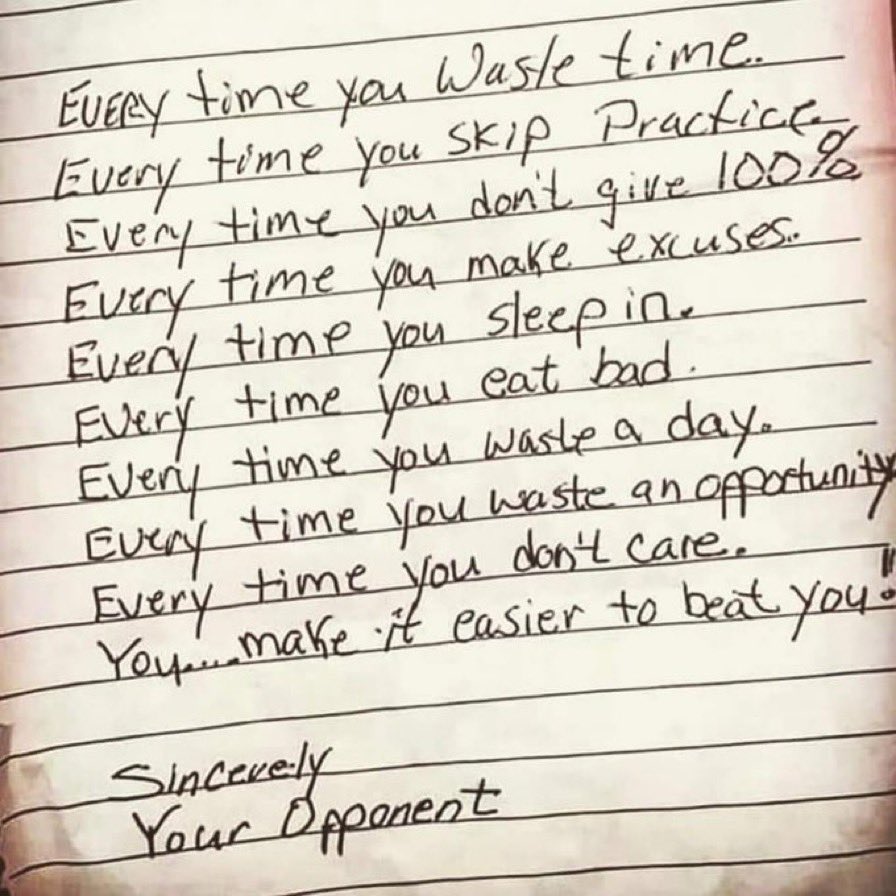 EVERY time you Waste time..
Every time you skip Practice.
Every time you don't give 100%
Every time you make excuses.
Every time you sleep in.
Every time you eat bad.
Every time you waste a day.
Every time you waste an opportunity
Every time you don't care.
You....make it easier to beat you!
Sincerely
Your Opponent